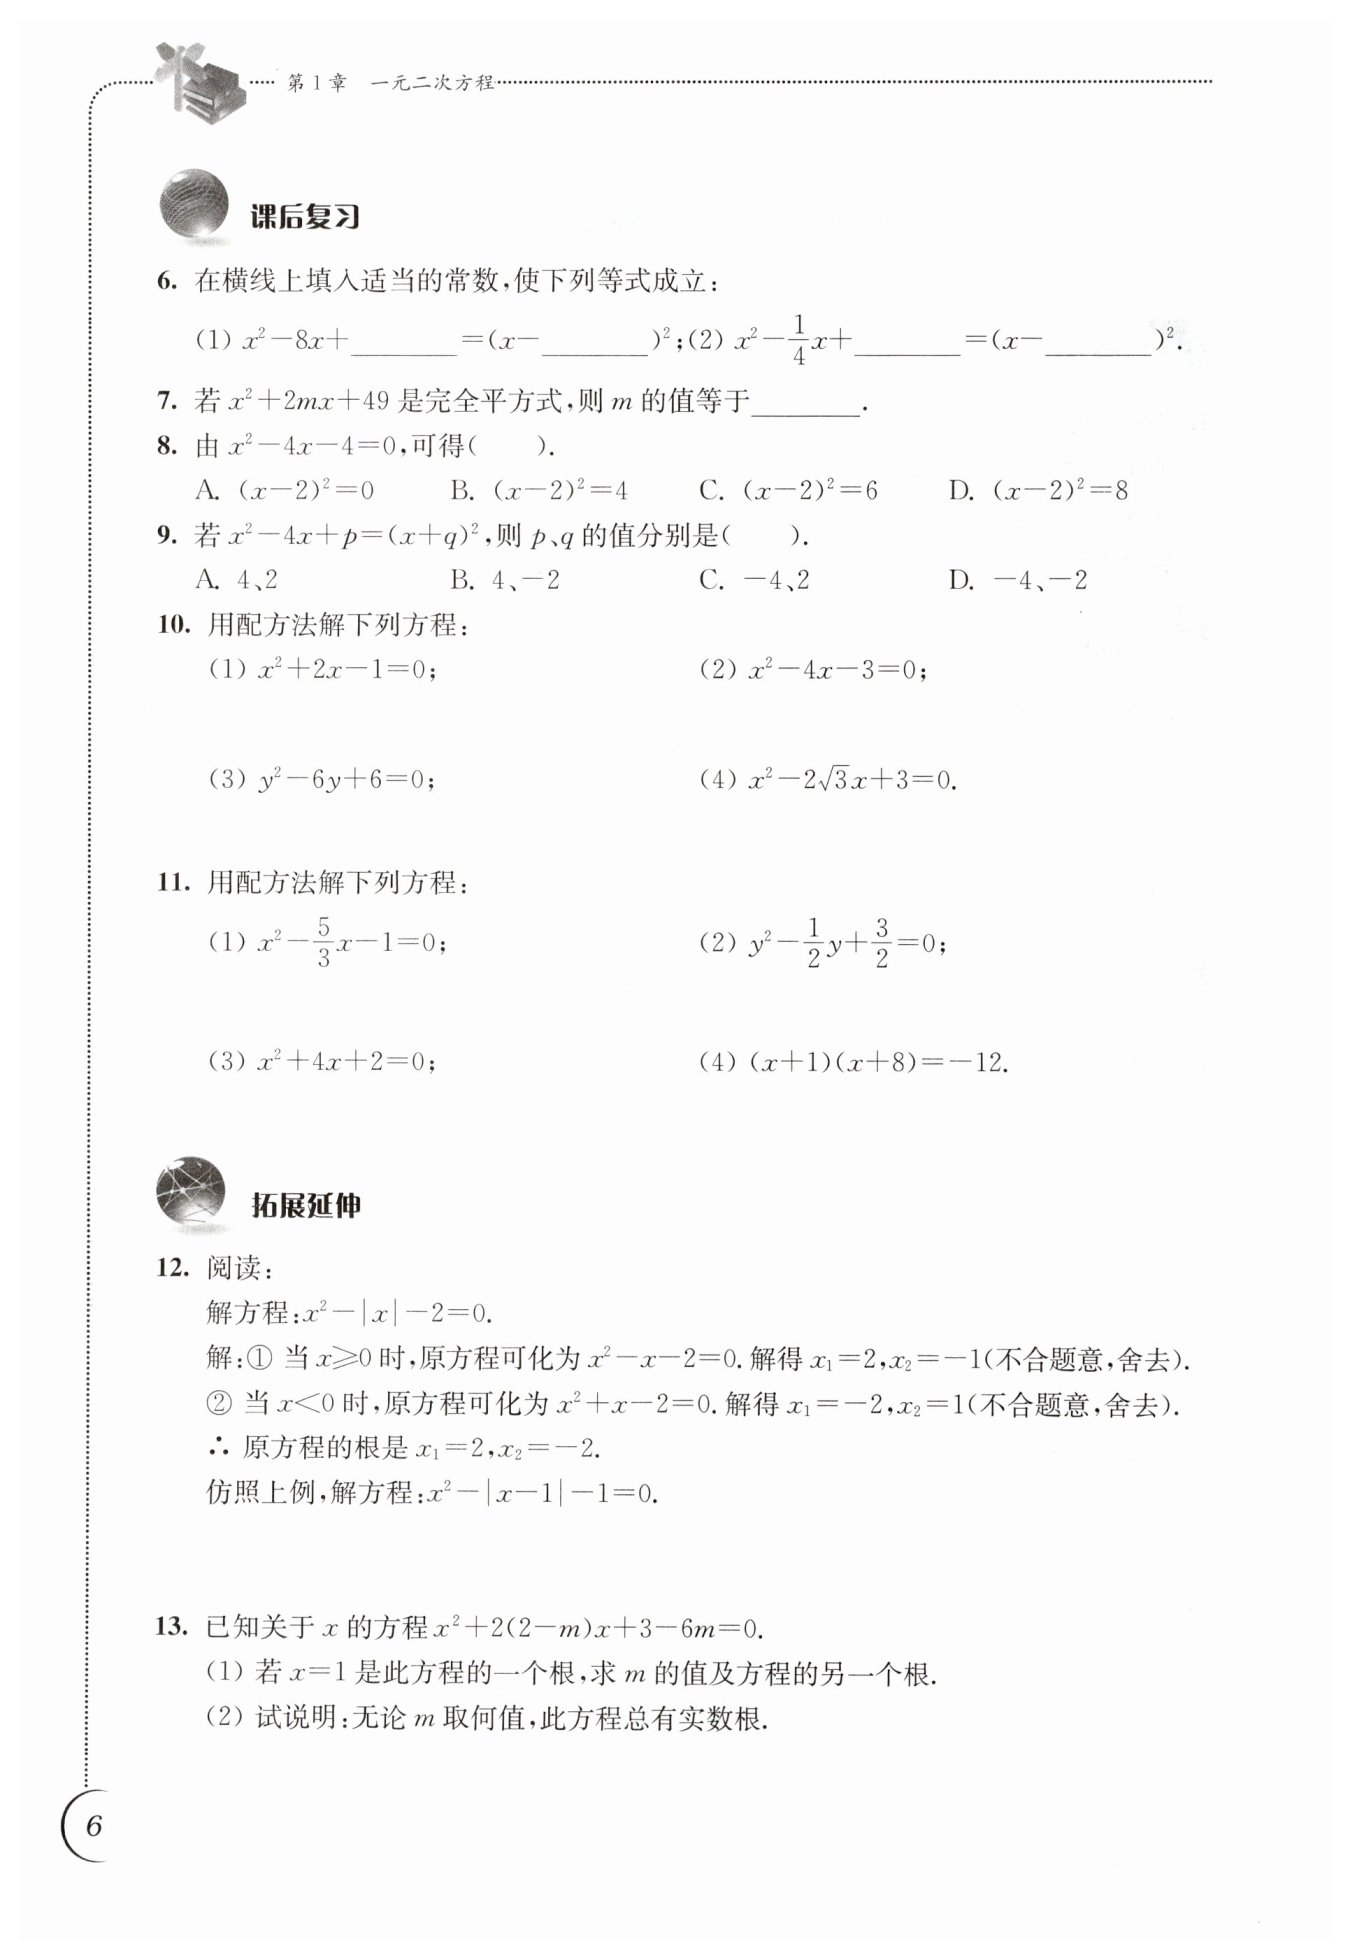 第1章 一元二次方程
课后复习
6. 在横线上填入适当的常数,使下列等式成立:
(1) x²-8x+________=(x-________)²;(2) x²-1/4x+________=(x-________)².
7. 若 x²+2mx+49 是完全平方式,则 m 的值等于________.
8. 由 x²-4x-4=0,可得(  ).
A. (x-2)²=0 B. (x-2)²=4 C. (x-2)²=6 D. (x-2)²=8
9. 若 x²-4x+p=(x+q)²,则 p、q 的值分别是(  ).
A. 4、2 B. 4、-2 C. -4、2 D. -4、-2
10. 用配方法解下列方程:
(1) x²+2x-1=0; (2) x²-4x-3=0;
(3) y²-6y+6=0; (4) x²-2√3x+3=0.
11. 用配方法解下列方程:
(1) x²-5/3x-1=0; (2) y²-1/2y+3/2=0;
(3) x²+4x+2=0; (4) (x+1)(x+8)=-12.
拓展延伸
12. 阅读:
解方程:x²-|x|-2=0.
解:① 当 x≥0 时,原方程可化为 x²-x-2=0. 解得 x₁=2,x₂=-1(不合题意,舍去).
② 当 x<0 时,原方程可化为 x²+x-2=0. 解得 x₁=-2,x₂=1(不合题意,舍去).
∴ 原方程的根是 x₁=2,x₂=-2.
仿照上例,解方程:x²-|x-1|-1=0.
13. 已知关于 x 的方程 x²+2(2-m)x+3-6m=0.
(1) 若 x=1 是此方程的一个根,求 m 的值及方程的另一个根.
(2) 试说明:无论 m 取何值,此方程总有实数根.
6